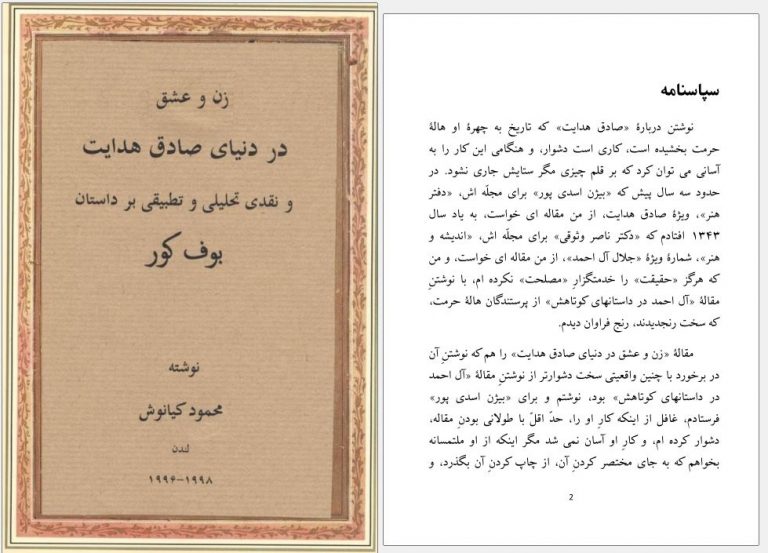 زن و عشق
در دنیای صادق هدایت
و نقدی تحلیلی و تطبیقی بر داستان
بوف کور
نوشته
محمود کیانوش
لندن
۱۹۹۶-۱۹۹۸
سپاسنامه
نوشتن دربارهٔ «صادق هدایت» که تاریخ به چهرهٔ او هالهٔ
حرمت بخشیده است، کاری است دشوار، و هنگامی این کار را به
آسانی می توان کرد که بر قلم چیزی مگر ستایش جاری نشود. در
حدود سه سال پیش که «بیژن اسدی پور» برای مجلّه اش، «دفتر
هنر»، ویژهٔ صادق هدایت، از من مقاله ای خواست، به یاد سال
۱۳۴۳ افتادم که «دکتر ناصر وثوقی» برای مجلّه اش، «اندیشه و
هنر»، شمارهٔ ویژهٔ «جلال آل احمد»، از من مقاله ای خواست، و من
که هرگز «حقیقت» را خدمتگزارِ «مصلحت» نکرده ام، با نوشتنِ
مقالهٔ «آل احمد در داستانهای کوتاهش» از پرستندگان هالهٔ حرمت،
که سخت رنجدیدند، رنج فراوان دیدم.
مقالهٔ «زن و عشق در دنیای صادق هدایت» را هم که نوشتنِ آن
در برخورد با چنین واقعیتی سخت دشوارتر از نوشتنِ مقالهٔ «آل احمد
در داستانهای کوتاهش» بود، نوشتم و برای «بیژن اسدی پور»
فرستادم، غافل از اینکه کارِ او را، حدّ اقلّ با طولانی بودنِ مقاله،
دشوار کرده ام، و کارِ او آسان نمی شد مگر اینکه از او ملتمسانه
بخواهم که به جای مختصر کردنِ آن، از چاپ کردنِ آن بگذرد، و
2